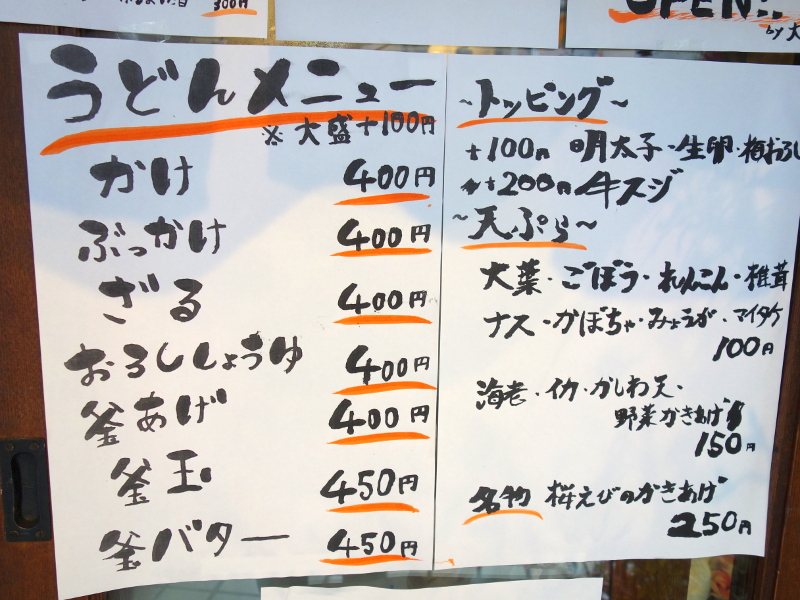 300円
OPEN!!
by 大
うどんメニュー
※大盛+100円
かけ 400円
ぶっかけ 400円
ざる 400円
おろししょうゆ 400円
釜あげ 400円
釜玉 450円
釜バター 450円
~トッピング~
+100円 明太子・生卵・梅おろし
+200円 牛スジ
~天ぷら~
大葉・ごぼう・れんこん・椎茸
ナス・かぼちゃ・みょうが・マイタケ
100円
海老・イカ・かしわ天・
野菜かきあげ
150円
名物 桜えびのかきあげ
250円